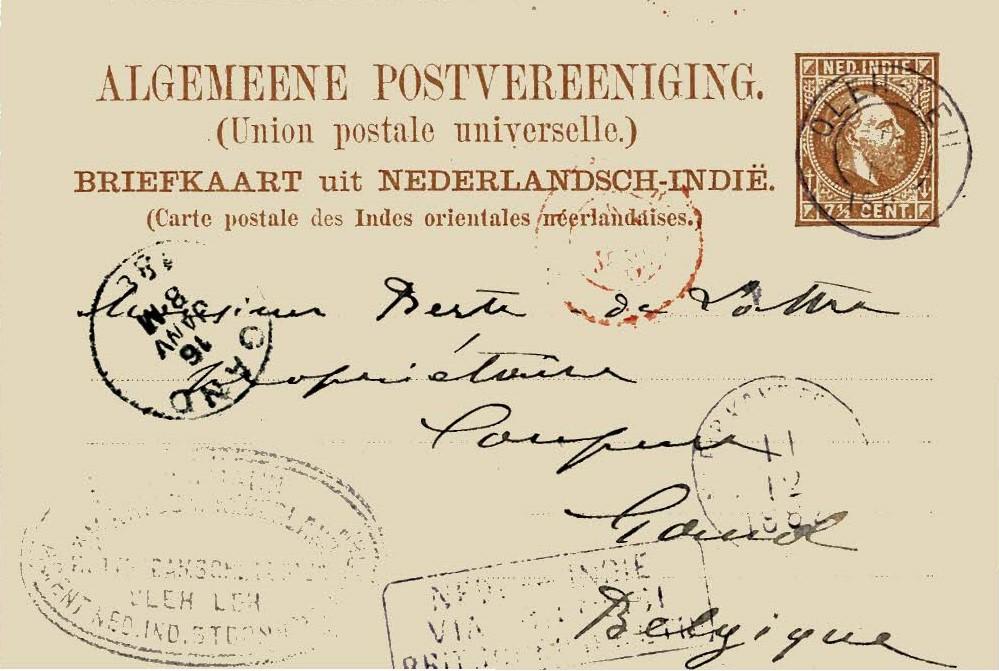 ALGEMEENE POSTVEREENIGING.
(Union postale universelle.)
BRIEFKAART uit NEDERLANDSCH-INDIË.
(Carte postale des Indes orientales néerlandaises.)
NED. INDIE
7½ CENT.
OLEH-LEH
Monsieur Berte de
Propriétaire
Coupure
Gand
Belgique
GAND
16
JANV
8 M
11
12
OLEH LEH
AGENT NED. IND.
INDIE
VIA